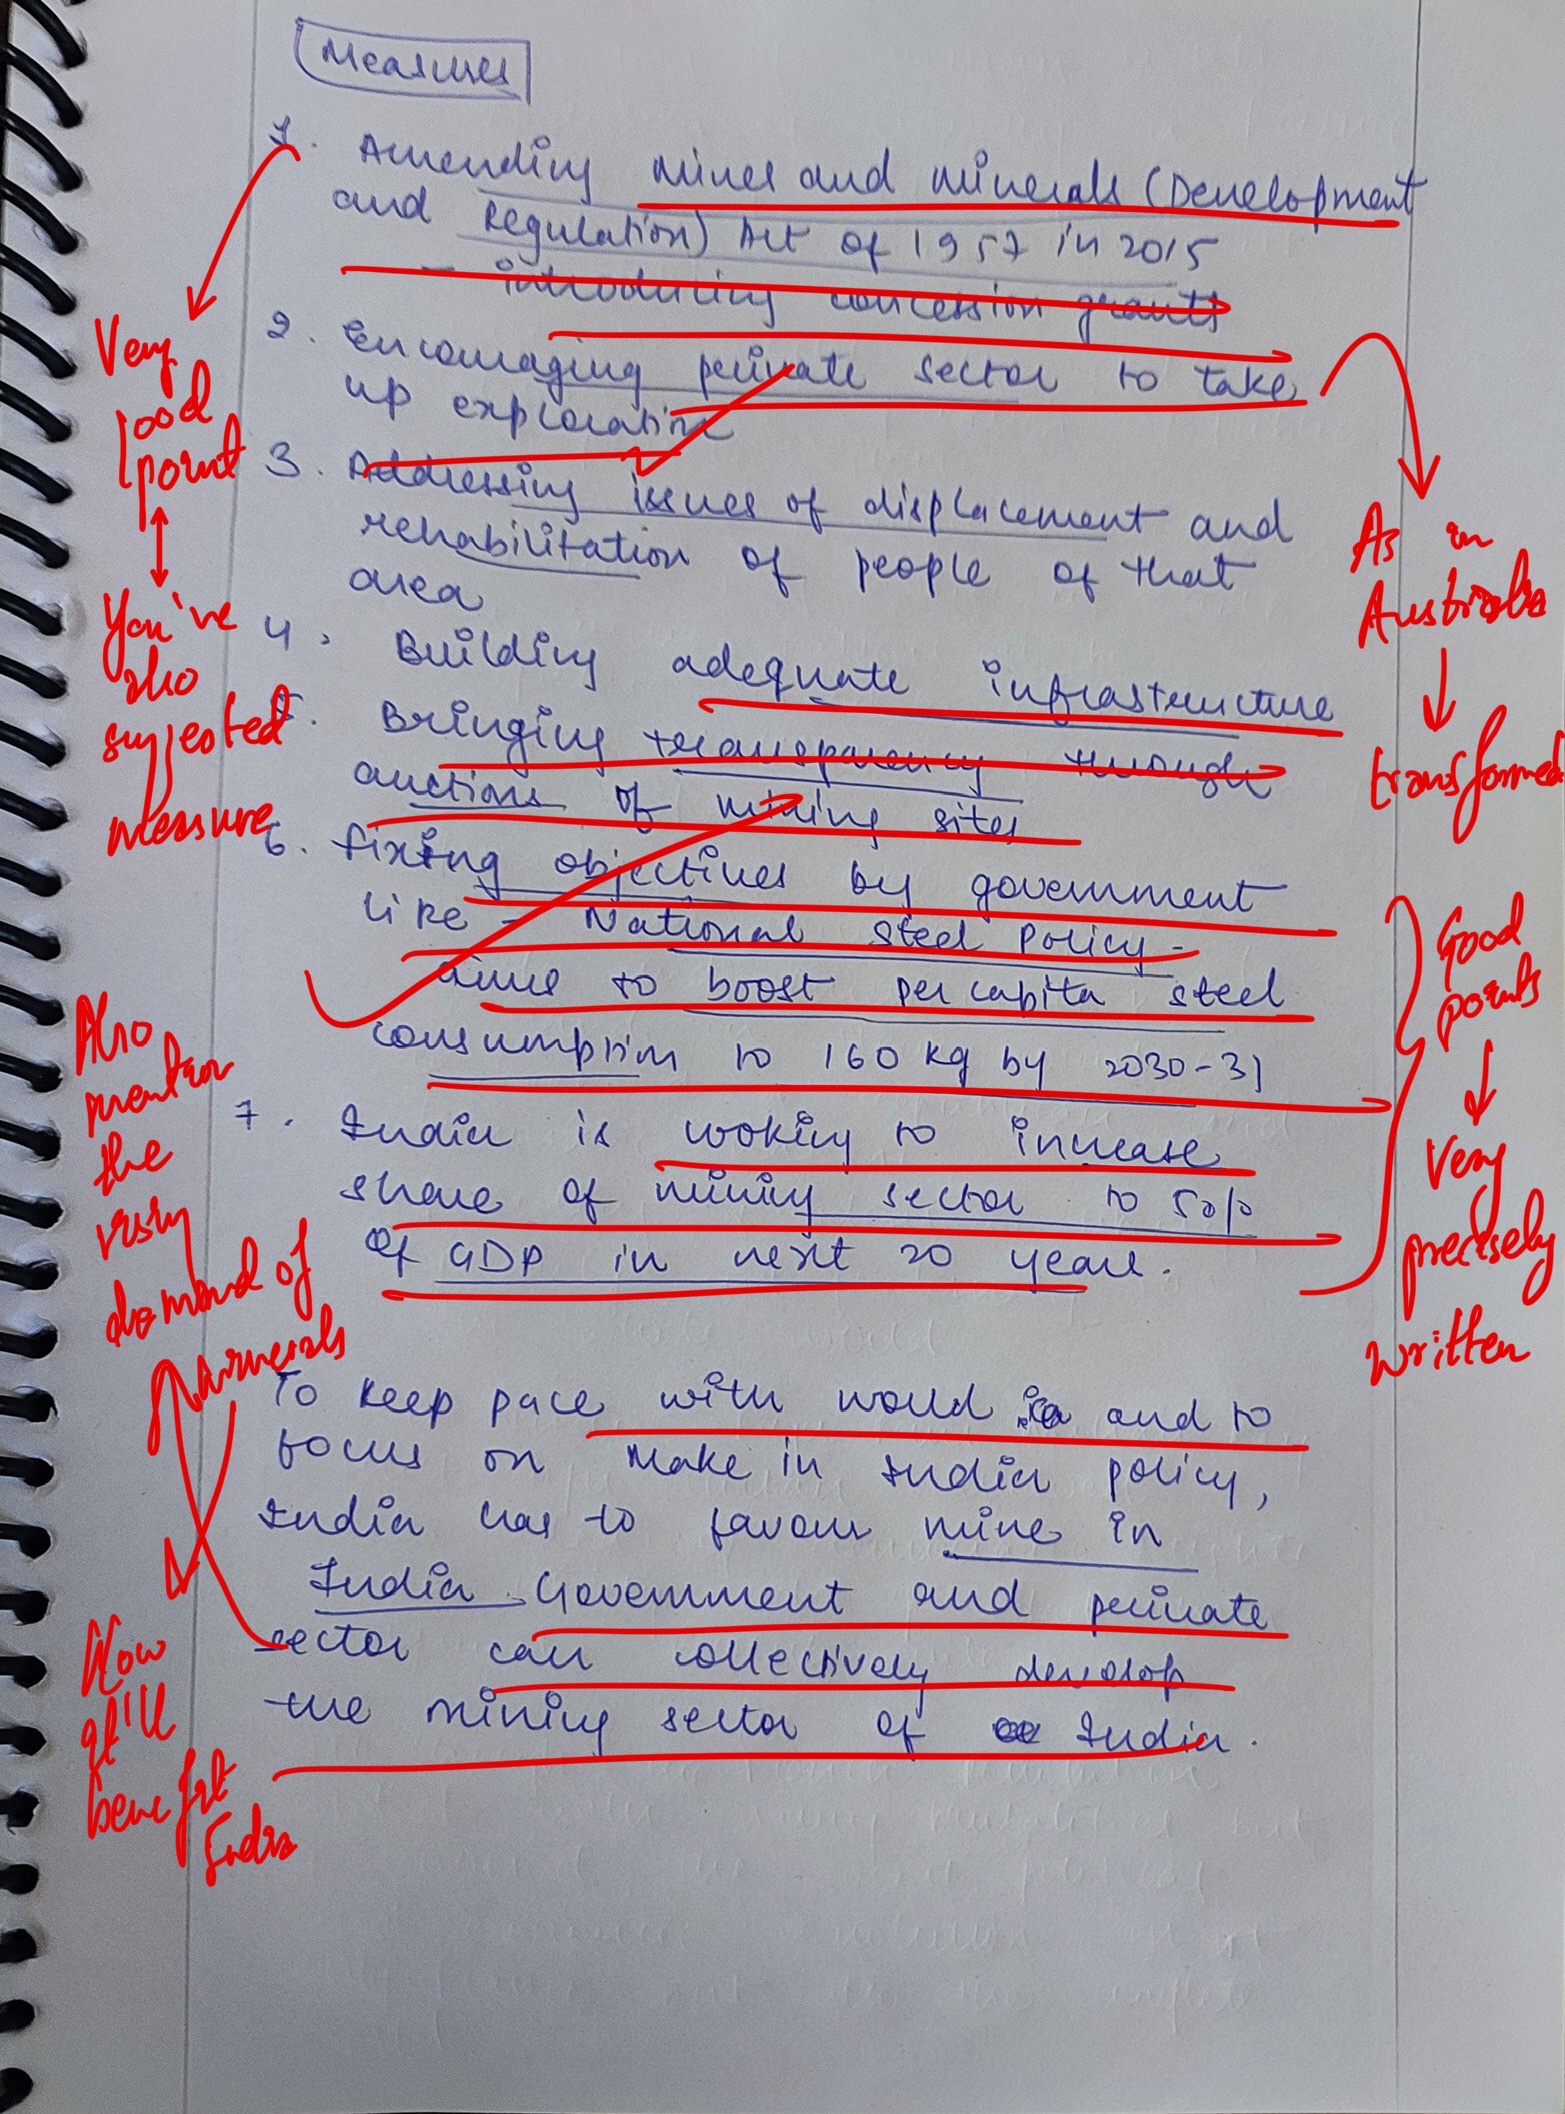 Measures
1. Amending Mines and Minerals (Development
and Regulation) Act of 1957 in 2015
- introducing concession grants
2. Encouraging private sector to take
up exploration
3. Addressing issues of displacement and
rehabilitation of people of that
area
4. Building adequate infrastructure
5. Bringing transparency through
auctions of mining sites
6. Fixing objectives by government
like - National Steel Policy -
aims to boost per capita steel
consumption to 160 kg by 2030-31
7. India is looking to increase
share of mining sector to 5%
of GDP in next 20 years.
To keep pace with world and to
focus on Make in India policy,
India has to favour mine in
India. Government and private
sector can collectively develop
the mining sector of India.
Very
Good
point
You've
also
suggested
measure
As in
Australia
transformed
Good
points
Very
precisely
written
Also
mention
the
rising
demand of
Minerals
How
it'll
benefit
India